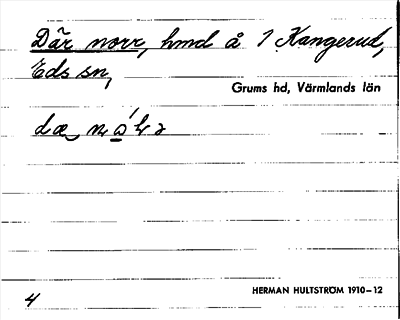 Där norr, hmd å 1 Kangerud,
Eds sn,
Grums hd, Värmlands län
4
HERMAN HULTSTRÖM 1910–12